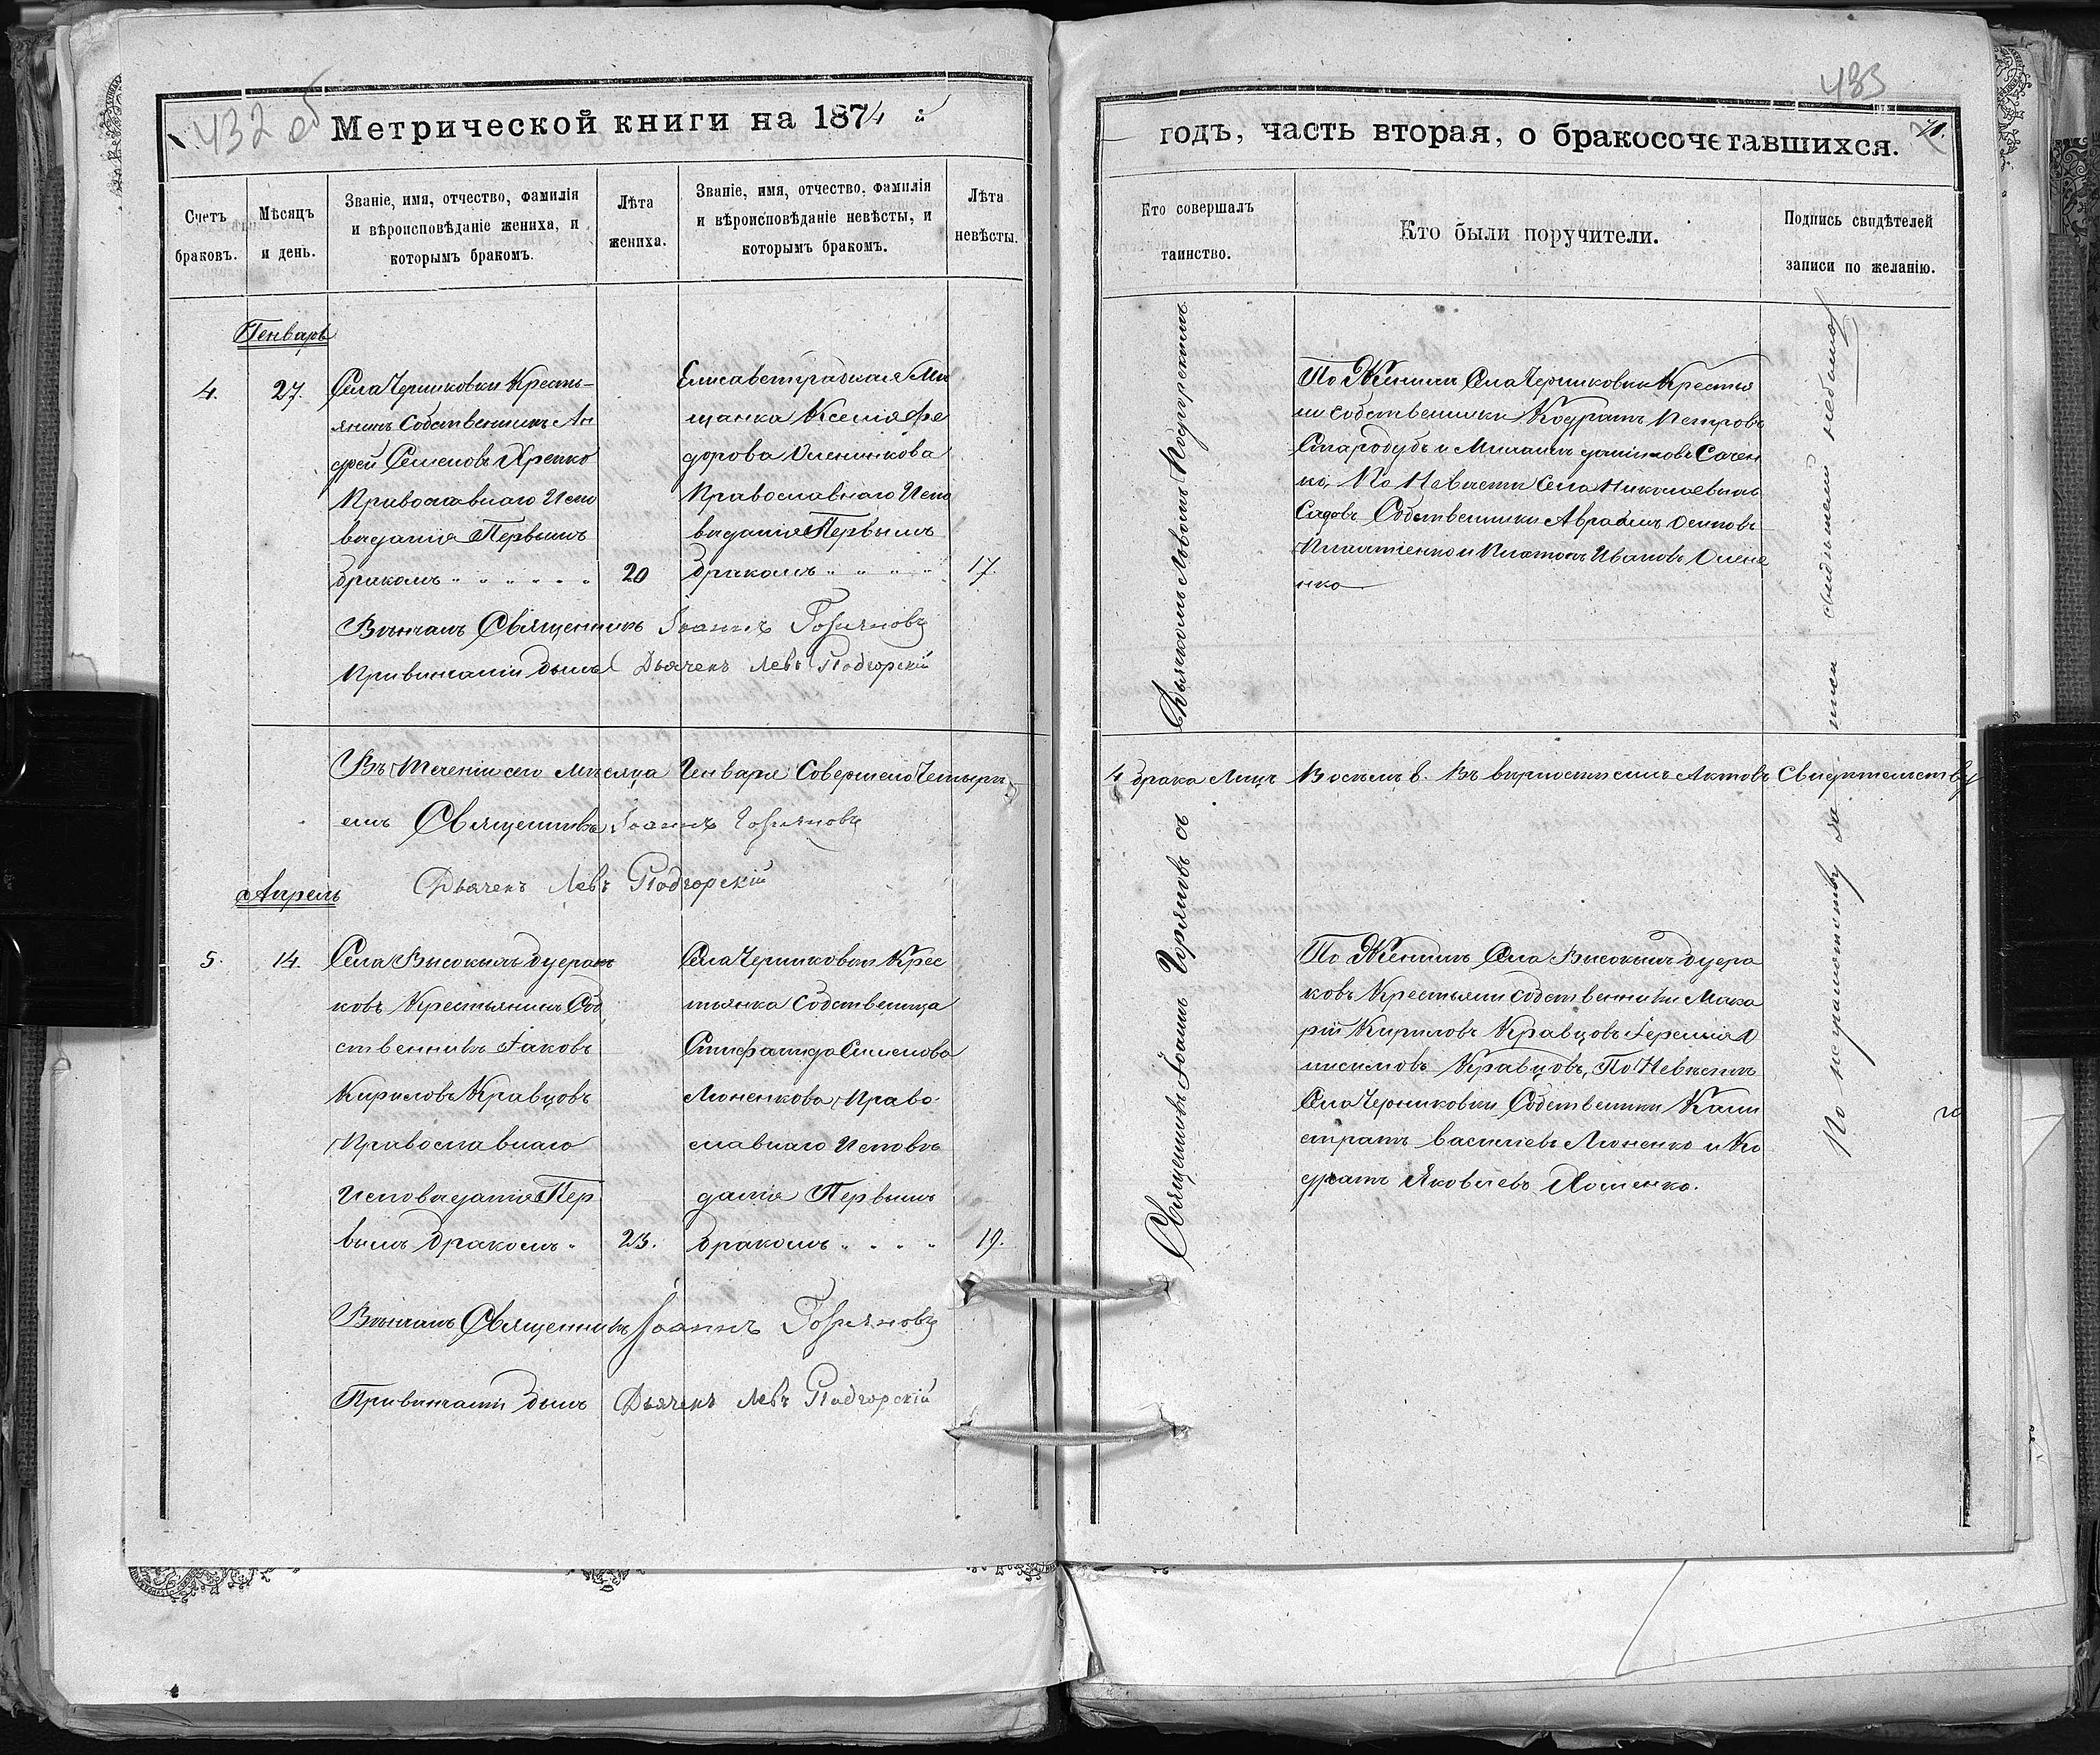 432 об
Метрической книги на 1874 й
Счетъ браковъ.
Мѣсяцъ и день.
Званіе, имя, отчество, фамилія
и вѣроисповѣданіе жениха, и
которымъ бракомъ.
Лѣта жениха.
Званіе, имя, отчество, фамилія
и вѣроисповѣданіе невѣсты, и
которымъ бракомъ.
Лѣта невѣсты.
Генварь
4.
27.
Села Черниковки Кресть-
янинъ Собственникъ Ан
дрей Семеновъ
Православнаго Испо
веданія Первымъ
бракомъ
20
Елисаветградская Ме
щанка Ксенія Фе
дорова Оленникова
Православнаго Испо
веданія Первымъ
бракомъ
17.
Вѣнчалъ Священникъ Іоаннъ Горяновъ
Привинчаніи былъ Дьячекъ Левъ Подгорскій
Въ Теченіи сего Мѣсяца Генваря Совершено Четыри
емъ Священникъ Іоаннъ Горяновъ
Дьячекъ Левъ Подгорскій
Апрель
5.
14.
Села Высокихъ Буерак
ковъ Крестьянинъ Соб
ственникъ Іаковъ
Кириловъ Кравцовъ
Православнаго
Исповеданія Пер
вымъ бракомъ
23.
Села Черниковки Крес
тьянка Собственица
Семенова
Люненкова Право
славнаго Исповѣ
данія Первымъ
бракомъ
19.
Вѣнчалъ Священникъ Іоаннъ Горяновъ
Привинчаніи былъ Дьячекъ Левъ Подгорскій
433
годъ, часть вторая, о бракосочетавшихся.
Кто совершалъ
таинство.
Кто были поручители.
Подпись свидѣтелей
записи по желанію.
Священникъ Іоаннъ Горяновъ съ Дьячкомъ Львомъ Подгорскимъ
По Женихи Села Черниковки Крестья
ни Собственники Кодратъ Петровъ
Стародубъ и Михаилъ Сачен
ко, По Невести Села Николаевыхъ
Садовъ Собственники Авраамъ Осиповъ
и Платонъ Ивановъ Олене
нко
4 брака Лицъ Восемь 8. Въ вирности сихъ Актовъ Свидительству
По Женихи Села Высокихъ Буера
ковъ Крестьяни Собственники Мака
рій Кириловъ Кравцовъ Іеремія О
нисимовъ Кравцовъ, По Невѣсти
Села Черниковки Собственники Кали
стратъ Василіевъ Люненко и Ко
дратъ Яковлевъ
По неграмотству за нихъ свидѣтелей небыло